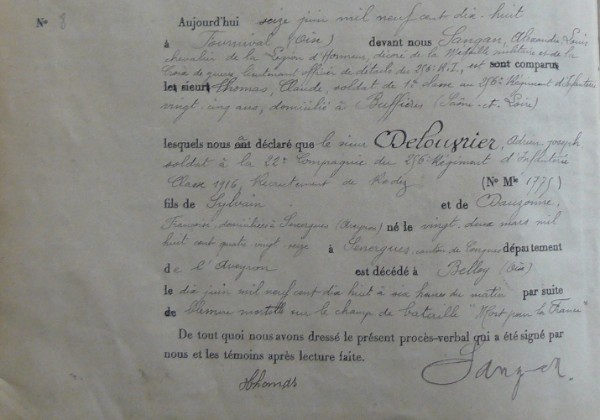 N° 8
Aujourd'hui seize juin mil neuf cent dix-huit
à Fournival (Oise) devant nous Sangan, Alexandre Louis
chevalier de la Légion d'Honneur, décoré de la Médaille militaire et de la
Croix de guerre, lieutenant officier de détails du 256e R.I., est sont comparus
les sieurs Thomas, Claude, soldat de 1e classe au 256e Régiment d'Infanterie
vingt cinq ans, domicilié à Buffières (Saône-et-Loire)
lesquels nous a ont déclaré que le sieur Delouvrier, Adrien Joseph
soldat à la 22e Compagnie du 256 Régiment d'Infanterie
Classe 1916, Recrutement de Rodez (N° Mle 1775)
fils de Sylvain et de Dauzonne,
domiciliés à Senergues (Aveyron) né le vingt deux mars mil
huit cent quatre vingt seize à Senergues, canton de Conques département
de l'Aveyron est décédé à Belloy (Oise)
le dix juin mil neuf cent dix huit à six heures du matin par suite
de blessure mortelle sur le champ de bataille "Mort pour la France"
De tout quoi nous avons dressé le présent procès-verbal qui a été signé par
nous et les témoins après lecture faite.
Thomas